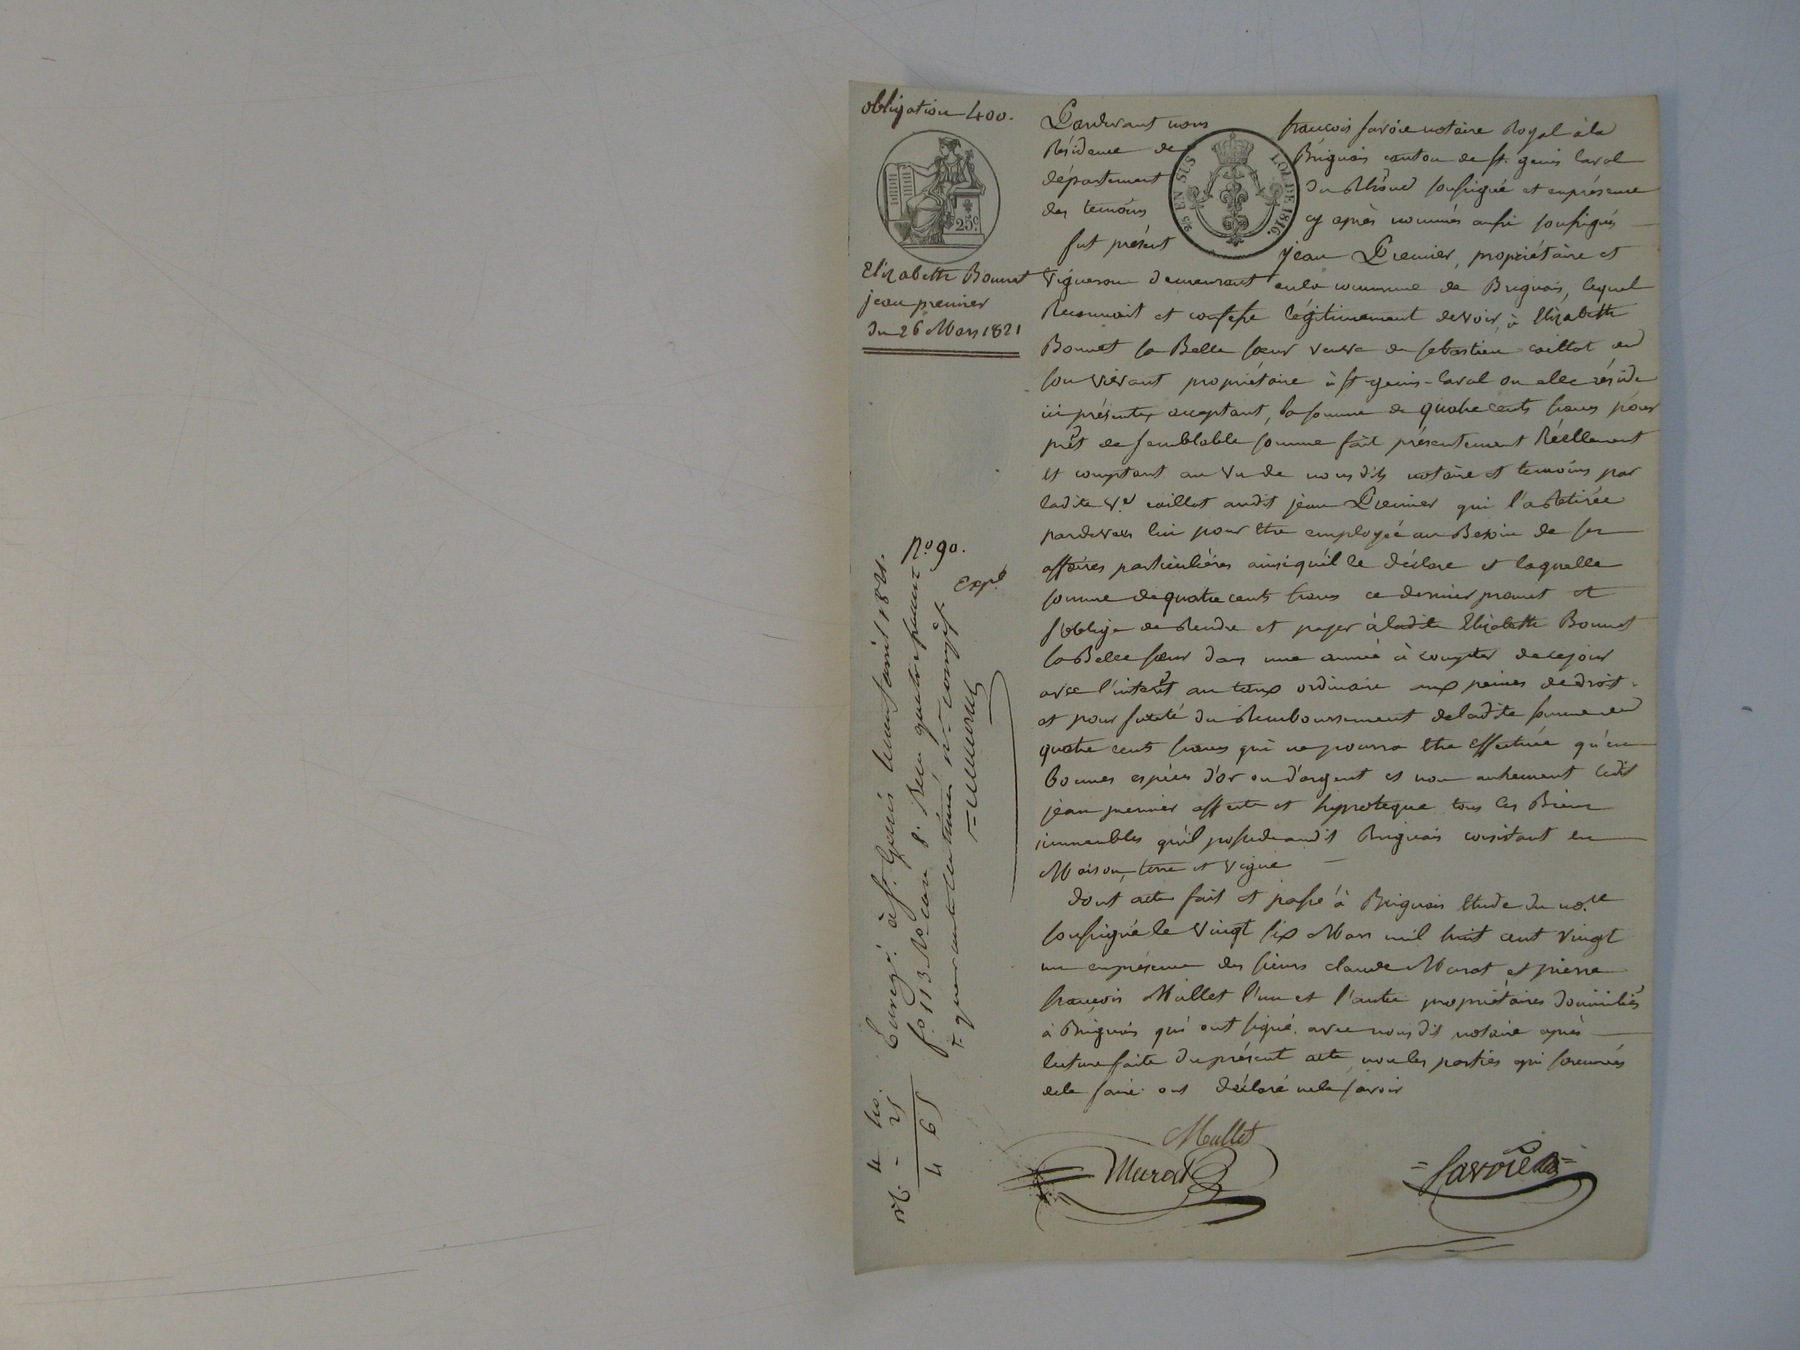 obligation 400.
25c.
Elizabette Bonnet
jean premier
du 26 Mars 1821
25 EN SUS LOI DE 1816.
Pardevant nous françois favoie notaire Royal à la
Résidence de Brignais canton de st. genis laval
département du Rhône soussigné et en présence
des temoins cy après nommés aussi soussignés
fut présent jean Premier, propriétaire et
Vigneron demeurant en la commune de Brignais, lequel
Reconnoit et confesse légitimement devoir, à Elizabette
Bonnet sa Belle sœur veuve de sebastien caillot en
son vivant propriétaire à st genis-laval ou elle réside
ici présente, acceptant, la somme de quatre cents francs pour
prêt de semblable somme fait présentement Réellement
et comptant au vu de nous dits notaire et temoins par
ladite Ve. caillot audit jean Premier qui l'a Retirée
pardevers lui pour être employée au Besoin de ses
affaires particulières ainsi qu'il le déclare et laquelle
somme de quatre cents francs ce dernier promet et
s'oblige de Rendre et payer à ladite Elizabette Bonnet
sa Belle sœur dans une année à compter de ce jour
avec l'interêt au taux ordinaire aux peines de droit.
et pour sureté du Remboursement de ladite somme de
quatre cents francs qui ne pourra être effectuée qu'en
bonnes espèces d'or ou d'argent et non autrement ledit
jean premier affecte et hypoteque tous les Biens
immeubles qu'il possede audit Brignais consistant en
Maison, terre et vigne
dont acte fait et passé à Brignais Etude du no.re
soussigné le Vingt six Mars mil huit cent vingt
un en présence des sieurs claude Murat et pierre
françois Mallet l'un et l'autre propriétaires domiciliés
à Brignais qui ont signé avec nous dit notaire après
lecture faite du présent acte non les parties qui sommés
de le faire ont déclaré ne le savoir
Mallet
Murat
Savoie
no. 90.
Expé
Enregé. à st. Genis le neuf avril 1821.
fo. 113 Ro. case 8. Reçu quatre francs
quarante centimes
4 40.
25
4 65